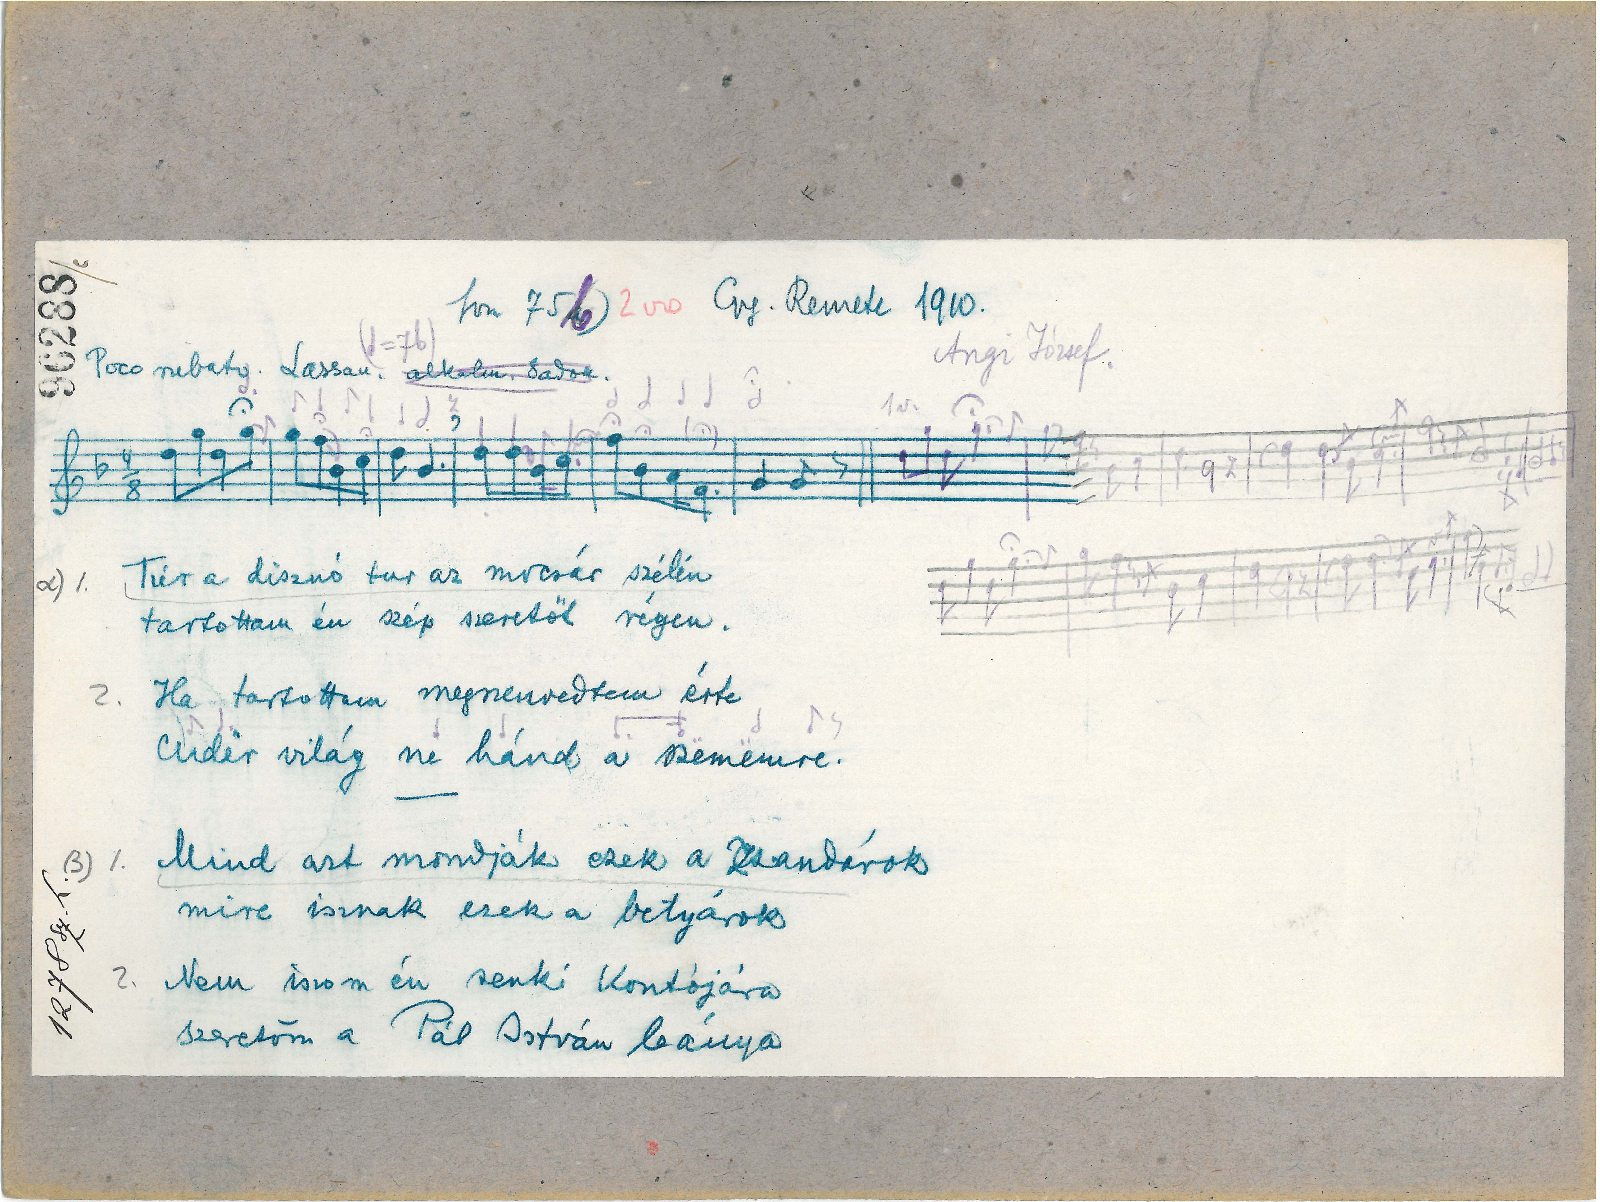 96288/c
fon 75 b) 2 vro Gy. Remete 1910.
(♩=76)
Poco rubato. Lassan. alkalm. Sadok.
Angi József.
1 v.
4/8
α) 1. Túr a disznó tur az mocsár szélén
tartottam én szép szeretőt régen.
2. Ha tartottam megszenvedtem érte
Cudër világ ne hánd a szëmëmre.
β) 1. Mind azt mondják ezek a Zsandárok
mire isznak ezek a betyárok
2. Nem iszom én senki Kontójára
szeretőm a Pál István leánya
1278